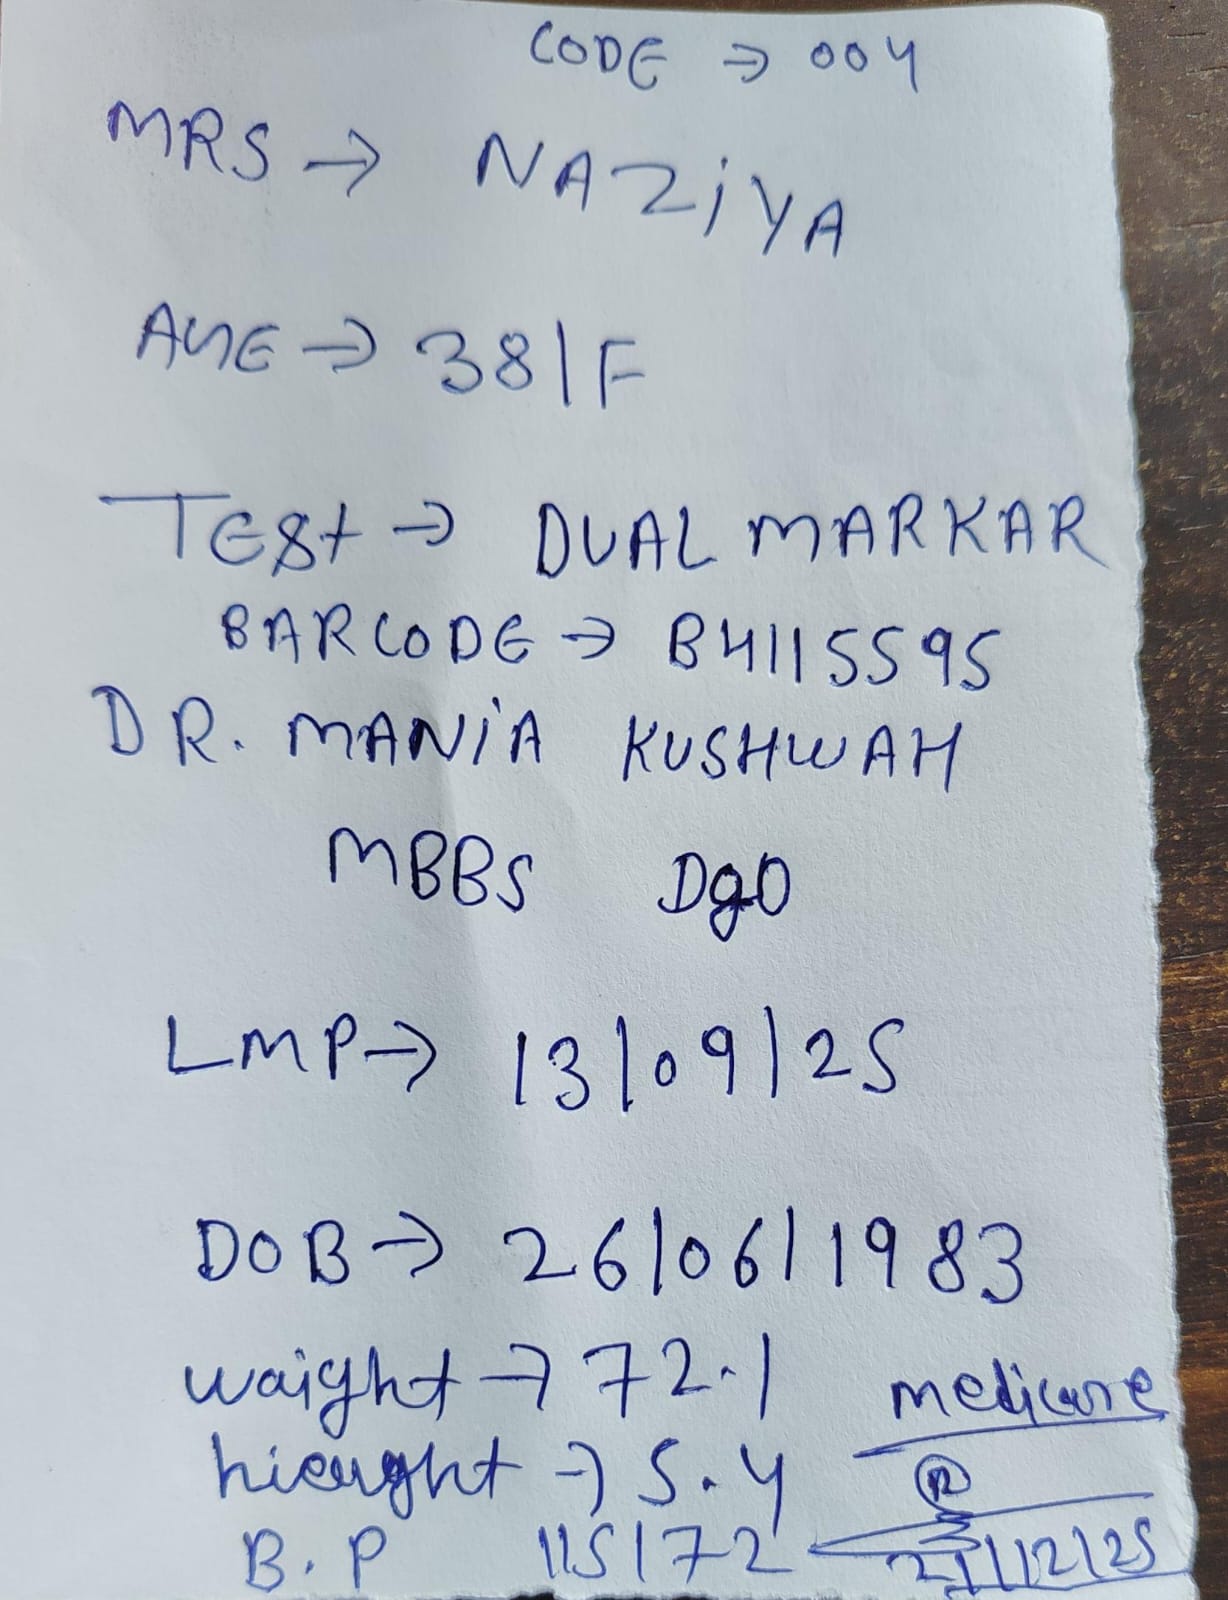 CODE ⇒ 004
MRS → NAZiYA
AGE → 38/F
TESt → DUAL MARKAR
BARCODE → B4115595
DR. MANiA KUSHWAH
MBBS DgO
LMP → 13/09/25
DOB → 26/06/1983
waight → 72.1
medicare
hieught → 5.4
B.P 115/72